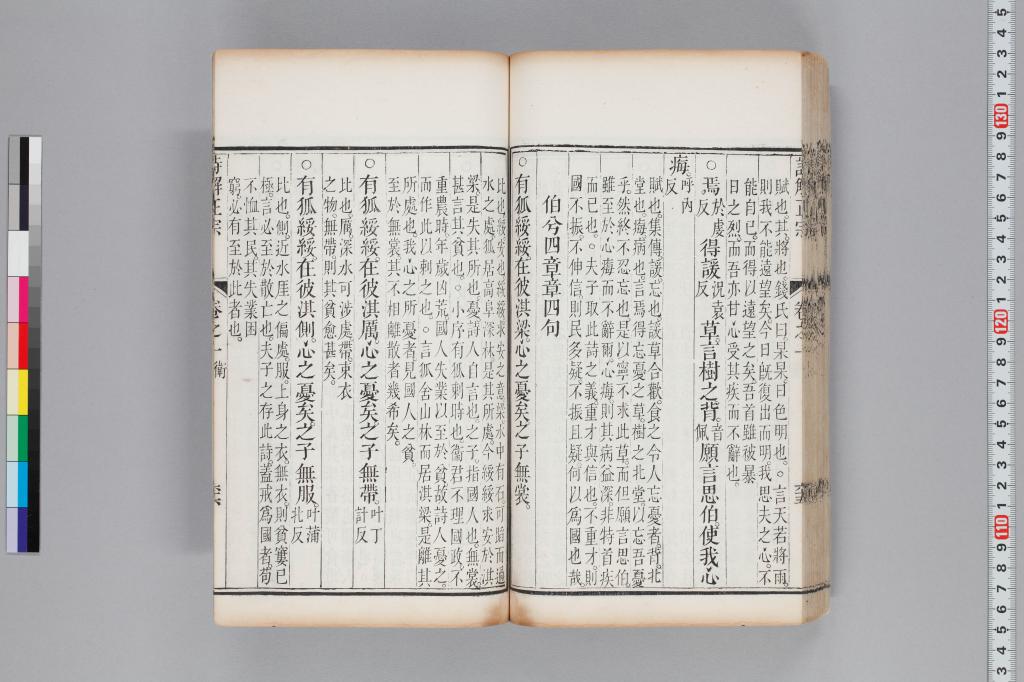 賦也。其將也。錢氏曰。杲杲。日色明也。○言天若將雨。
則我不能遠望矣。今日旣復出而明。我思夫之心。不
能自已。而得以遠望之矣。吾首雖被暴
日之烈。而吾亦甘心受其疾而不辭也。
○焉於虔反得諼況袁反草。言樹之背。音佩願言思伯。使我心
痗。呼內反
賦也。集傳。諼。忘也。諼草合歡。食之令人忘憂者。背。北
堂也。痗。病也。言焉得忘憂之草。樹之北堂。以忘吾憂
乎。然終不忍忘也。是以寧不求此草。而但願言思伯。
雖至於心痗而不辭爾。心痗則其病益深。非特首疾
而已也。○夫子取此詩之義。重才與信也。不重才。則
國不振。不伸信。則民多疑。不振且疑。何以為國也哉。
伯兮四章章四句
○有狐綏綏。在彼淇梁。心之憂矣。之子無裳。
比也。綏綏。求安之意。梁。水中有石。可蹈而過
水之處。狐居高草深林。是其所處。今綏綏求安於淇
梁。是失其所也。憂。詩人自言也。之子。指國人也。無裳。
甚言其貧也。○小序。有狐。刺時也。衛君不理國政。不
重農時。年歲凶荒。國人失業。以至於貧。故詩人憂之。
而作此以刺之也。○言狐舍山林而居淇梁。是離其
所處也。我心之所憂者。見國人之貧。
至於無裳。其不相離散者幾希矣。
○有狐綏綏。在彼淇厲。心之憂矣。之子無帶。叶丁計反
比也。厲。深水可涉處。帶。束衣
之物。無帶。則其貧愈甚矣。
○有狐綏綏。在彼淇側。心之憂矣。之子無服。叶蒲北反
比也。側。近水厓之偏處。服。上身之衣。無衣則貧窶已
極。言必至於散亡也。夫子之存此詩。蓋戒為國者。苟
不恤其民。其失業困
窮。必有至於此者也。
詩解正宗
卷之一 衛